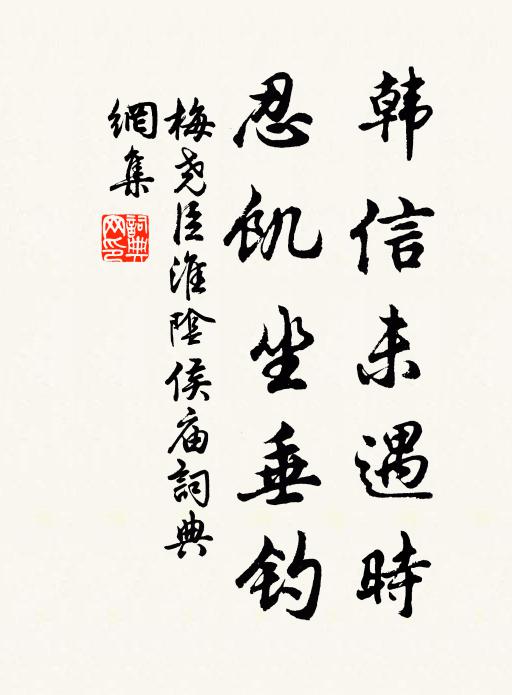 韩信未遇時
忍飢坐垂钓
梅尧臣淮陰侯庙詞典
網集
詞典
网印